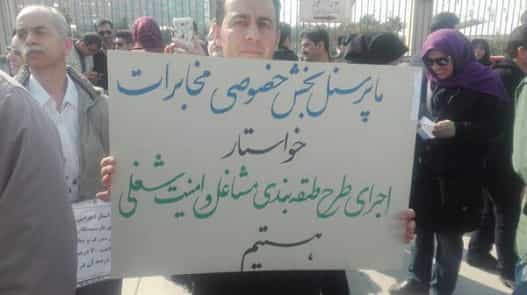 ما پرسنل بخش خصوصی مخابرات
خواستار
اجرای طرح طبقه بندی مشاغل و امنیت شغلی
هستیم